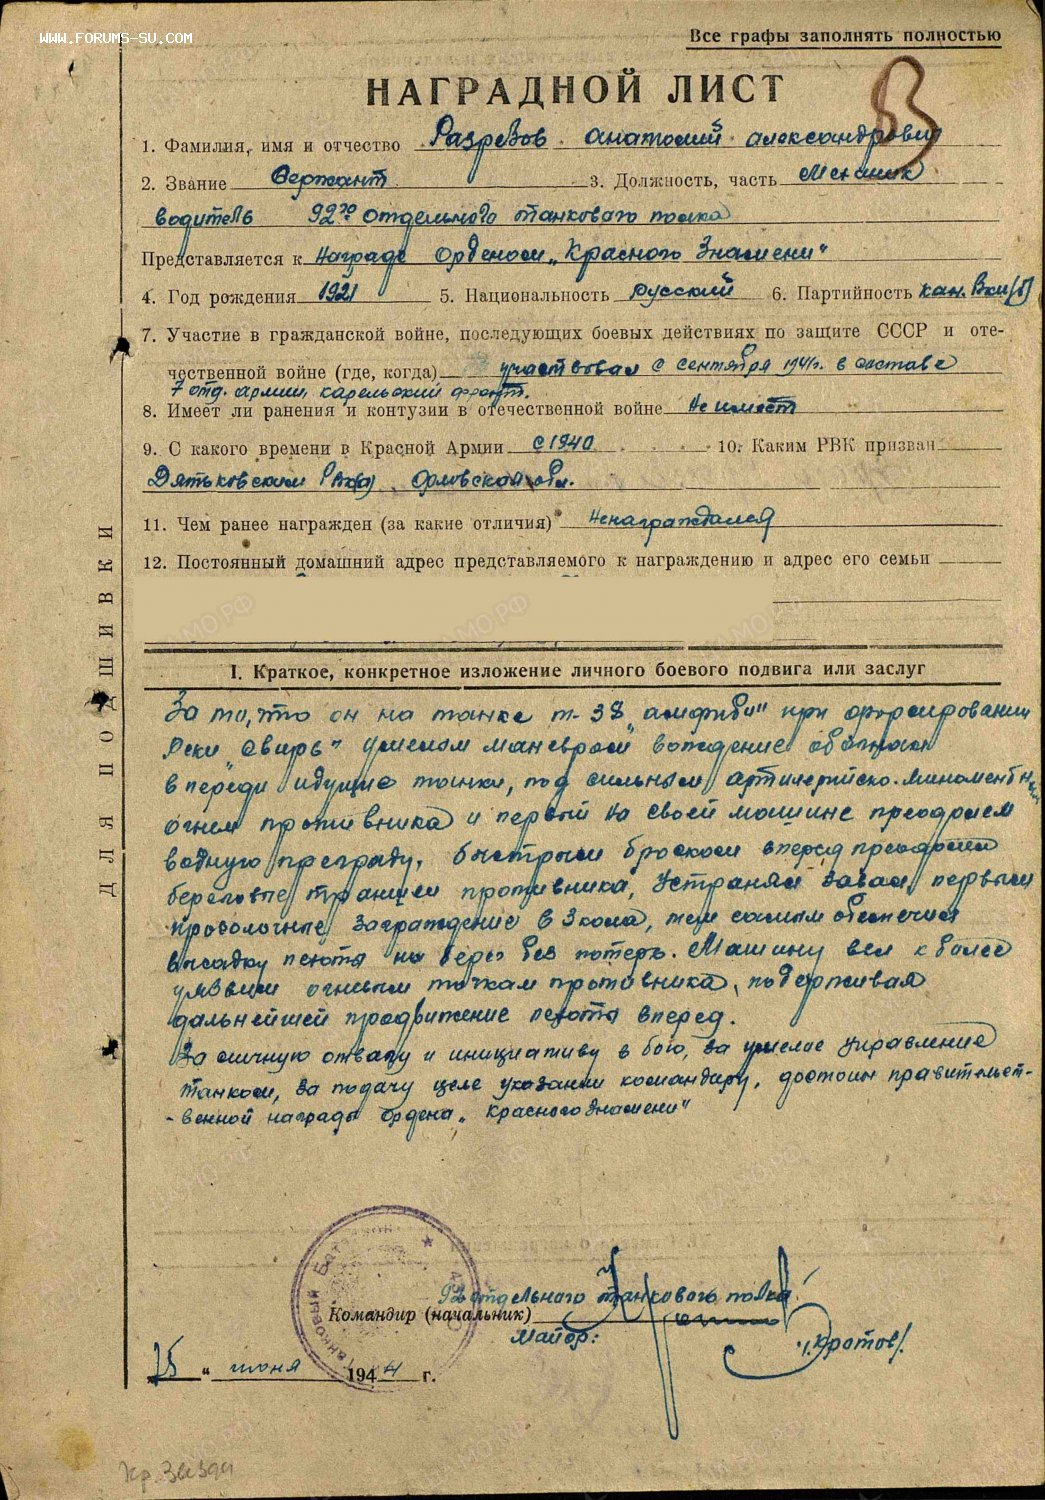 WWW.FORUMS-SU.COM
Все графы заполнять полностью
НАГРАДНОЙ ЛИСТ
83
1. Фамилия, имя и отчество Разрезов Анатолий Александрович
2. Звание Сержант 3. Должность, часть Механик
водитель 92го отдельного танкового полка
Представляется к награде Орденом „Красного Знамени"
4. Год рождения 1921 5. Национальность русский 6. Партийность кан. Вкп(б)
7. Участие в гражданской войне, последующих боевых действиях по защите СССР и оте-
чественной войне (где, когда) участвовал с сентября 1941г. в составе
7 отд. армии, карельский фронт.
8. Имеет ли ранения и контузии в отечественной войне не имеет
9. С какого времени в Красной Армии с 1940 10. Каким РВК призван
Дятьковским Орловская обл.
11. Чем ранее награжден (за какие отличия) ненаграждался
12. Постоянный домашний адрес представляемого к награждению и адрес его семьи
I. Краткое, конкретное изложение личного боевого подвига или заслуг
За то, что он на танке т-38 „амфибия" при форсировании
реки „Свирь" умелым маневром вождение обогнал
впереди идущие танки, под сильным артилерийско-минометным
огнем противника и первый на своей машине преодолел
водную преграду, быстрым броском вперед преодолел
береговые траншеи противника, устраняя завал, первым
проволочные заграждение в 3 кола, тем самым обеспечил
высадку пехоты на берег без потерь. Машину вел к более
уязвим огневым точкам противника, подерживая
дальнейшей продвижение пехоты вперед.
За личную отвагу и инициативу в бою, за умелое управление
танком, за подачу целе указании командиру, достоин правительст-
-венной награды ордена „Красного знамени"
Танковый Батальон
92 отдельного танкового полка
Командир (начальник)
Майор: /Кротов/.
„25" июня 1944 г.
Кр. Звезда
ДЛЯ ПОДШИВКИ
ЦАМО.РФ